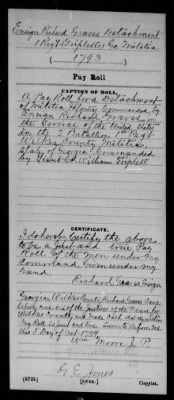 Ensign Richard Graves Detachment
1 Reg't (Triplett's) Ga. Militia
(1793)
Pay Roll
CAPTION OF ROLL.
A Pay Roll for a Detachment
of Militia Infantry Commanded by
Ensign Richard Graves in
the Service of the United States
in the 2 Battalion 1st Reg't
Wilkes County Militia,
State of Georgia Commanded
by Lieut Col William Triplett
CERTIFICATE.
I do hereby Certify the above
to be a just and true Pay
Roll of the men under my
Command Given under my
hand
Richard Graves Ensign
Georgia Wilkes County Richard Graves Came
before me one of the Justices of the Peace for
Wilkes County and made Oath that the within
Pay Roll is just and true Sworn to Before me
this 5 Day of Oct 1794
Wm. Moore J. P.
G. E. Jones
(573b)
Copyist.